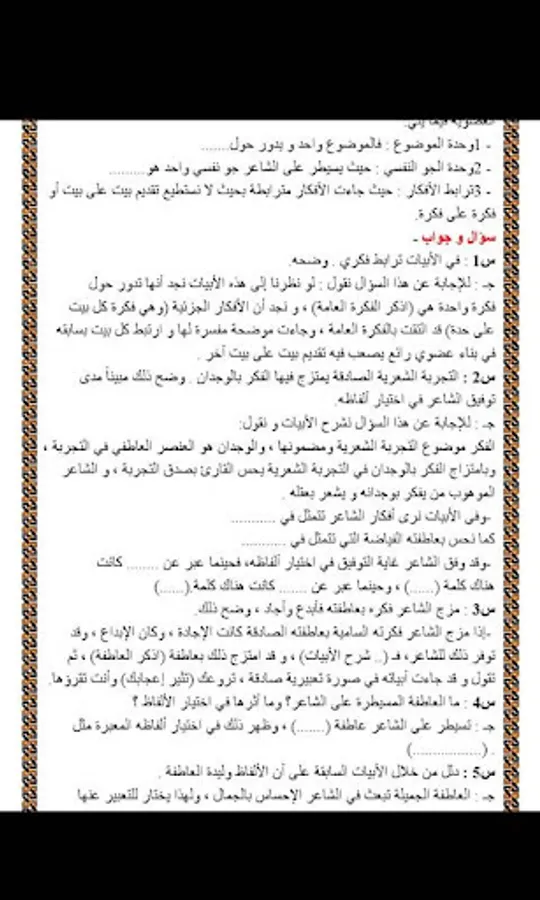 العضوية فيما يلي:
- 1وحدة الموضوع : فالموضوع واحد و يدور حول.......
- 2وحدة الجو النفسي : حيث يسيطر على الشاعر جو نفسي واحد هو..........
- 3ترابط الأفكار : حيث جاءت الأفكار مترابطة بحيث لا نستطيع تقديم بيت على بيت أو
فكرة على فكرة.
سؤال و جواب -
س1 : في الأبيات ترابط فكري . وضحه.
جـ : للإجابة عن هذا السؤال نقول : لو نظرنا إلى هذه الأبيات نجد أنها تدور حول
فكرة واحدة هي (اذكر الفكرة العامة) ، و نجد أن الأفكار الجزئية (وهي فكرة كل بيت
على حدة) قد التقت بالفكرة العامة ، وجاءت موضحة مفسرة لها و ارتبط كل بيت بسابقه
في بناء عضوي رائع يصعب فيه تقديم بيت على بيت آخر .
س2 : التجربة الشعرية الصادقة يمتزج فيها الفكر بالوجدان . وضح ذلك مبيناً مدى
توفيق الشاعر في اختيار ألفاظه.
جـ : للإجابة عن هذا السؤال نشرح الأبيات و نقول:
الفكر موضوع التجربة الشعرية ومضمونها ، والوجدان هو العنصر العاطفي في التجربة ،
وبامتزاج الفكر بالوجدان في التجربة الشعرية يحس القارئ بصدق التجربة ، و الشاعر
الموهوب من يفكر بوجدانه و يشعر بعقله .
-وفى الأبيات نرى أفكار الشاعر تتمثل في ............
كما نحس بعاطفته الفياضة التي تتمثل في ............
-وقد وفق الشاعر غاية التوفيق في اختيار ألفاظه، فحينما عبر عن ........ كانت
هناك كلمة (......) ، وحينما عبر عن ....... كانت هناك كلمة.(......)
س3 : مزج الشاعر فكره بعاطفته فأبدع وأجاد ، وضح ذلك.
-إذا مزج الشاعر فكرته السامية بعاطفته الصادقة كانت الإجادة ، وكان الإبداع ، وقد
توفر ذلك للشاعر، فـ (.. شرح الأبيات) ، و قد امتزج ذلك بعاطفة (اذكر العاطفة) ، ثم
تقول و قد جاءت أبياته في صورة تعبيرية صادقة ، تروعك (تثير إعجابك) وأنت تقرؤها.
س4 : ما العاطفة المسيطرة على الشاعر؟ وما أثرها في اختيار الألفاظ ؟
جـ : تسيطر على الشاعر عاطفة (.......) ، وظهر ذلك في اختيار ألفاظه المعبرة مثل
(................) .
س5 : دلل من خلال الأبيات السابقة على أن الألفاظ وليدة العاطفة .
جـ : العاطفة الجميلة تبعث في الشاعر الإحساس بالجمال ، ولهذا يختار للتعبير عنها